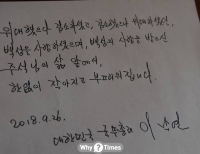 위대했으나 검소하셨고, 검소했으나
백성을 사랑하셨으며, 백성의 사랑을 받으신
주석님의 삶 앞에서,
한없이 작아지고 부끄러워집니다.
2018.9.26.
대한민국 국무총리 이낙연
Why ? Times